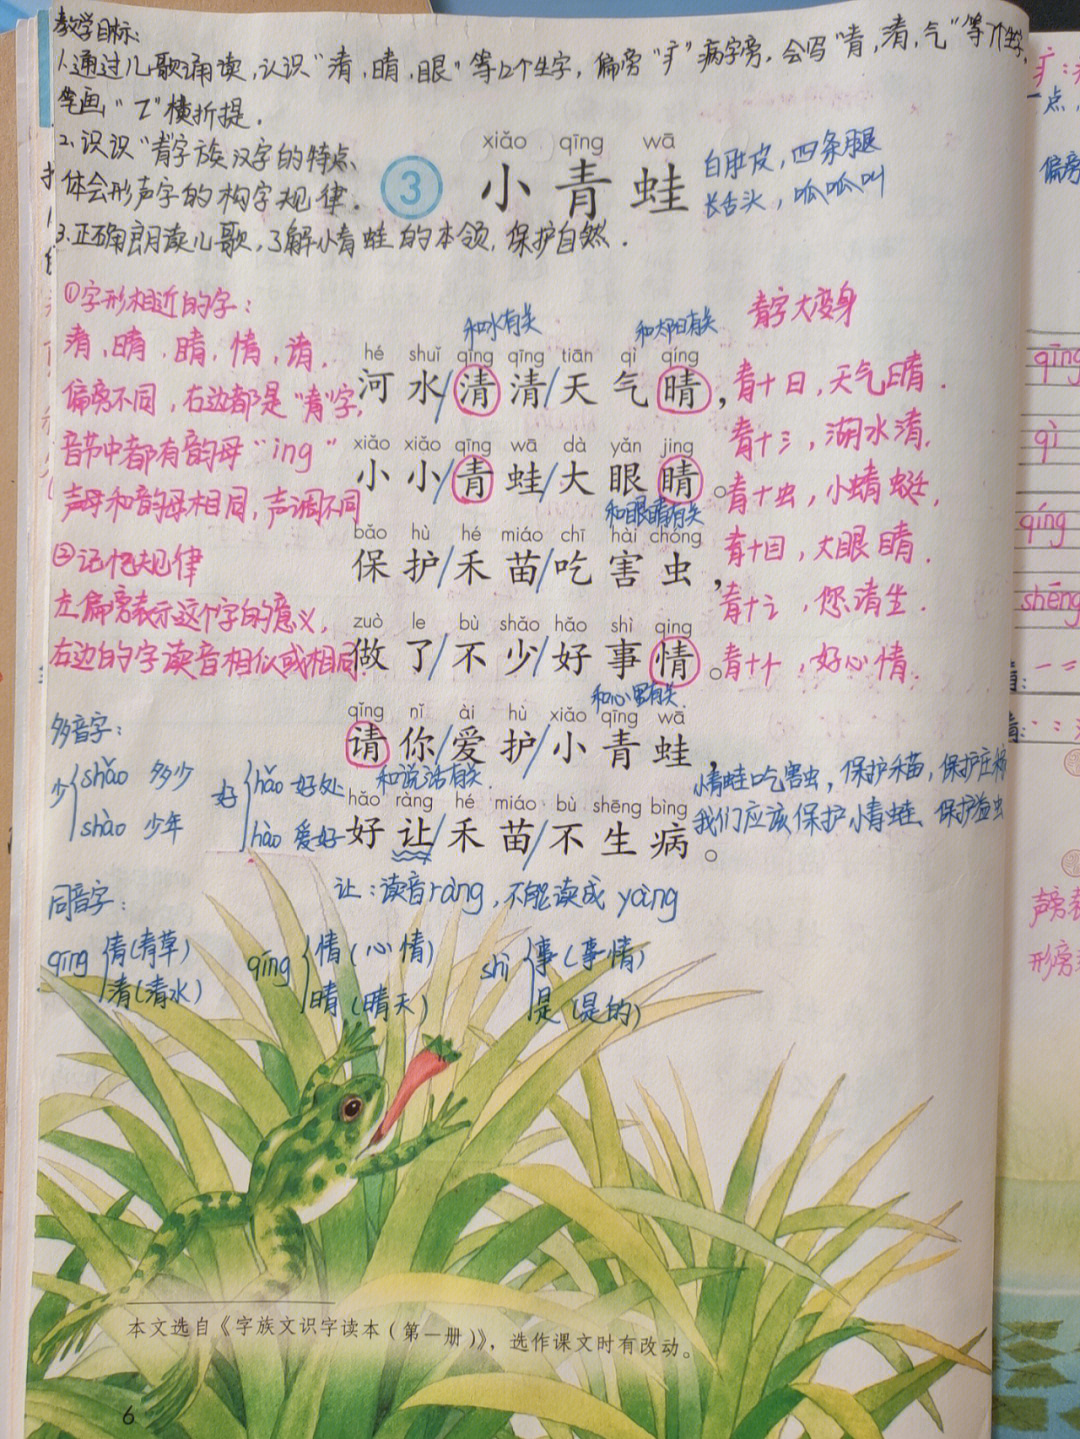 教学目标:
1.通过儿歌诵读,认识"清,晴,眼"等12个生字,偏旁"疒"病字旁,会写"青,清,气"等7个生字,
笔画"㇊"横折提.
2.识识"青"字族汉字的特点,
体会形声字的构字规律.
3.正确朗读儿歌,了解小青蛙的本领,保护自然.
xiǎo qīng wā
3 小青蛙
白肚皮,四条腿
长舌头,呱呱叫
①字形相近的字:
清,晴.睛,情,请.
偏旁不同,右边都是"青"字,
音节中都有韵母"ing"
声母和韵母相同,声调不同
②记忆规律
左偏旁表示这个字的意义,
右边的字读音相似或相同.
和水有关
和太阳有关
hé shuǐ qīng qīng tiān qì qíng
河水/清清/天气晴,
xiǎo xiǎo qīng wā dà yǎn jing
小小/青蛙/大眼睛。
和眼睛有关
bǎo hù hé miáo chī hài chóng
保护/禾苗/吃害虫,
zuò le bù shǎo hǎo shì qing
做了/不少/好事情。
和心里有关.
qǐng nǐ ài hù xiǎo qīng wā
请你/爱护/小青蛙,
和说话有关.
hǎo ràng hé miáo bù shēng bìng
好让/禾苗/不生病。
让:读音ràng,不能读成yàng
青字大变身
青+日,天气晴.
青+氵,湖水清.
青+虫,小蜻蜓,
青+目,大眼睛.
青+讠,您请坐.
青+忄,好心情.
小青蛙吃害虫,保护禾苗,保护庄稼
我们应该保护小青蛙、保护益虫
多音字:
少 shǎo 多少
shào 少年
好 hǎo 好处
hào 爱好
同音字:
qīng 青(青草)
清(清水)
qíng 情(心情)
晴(晴天)
shì 事(事情)
是(是的)
本文选自《字族文识字读本(第一册)》,选作课文时有改动。
6
偏旁
qīng
qì
qíng
shēng
声旁表
形旁